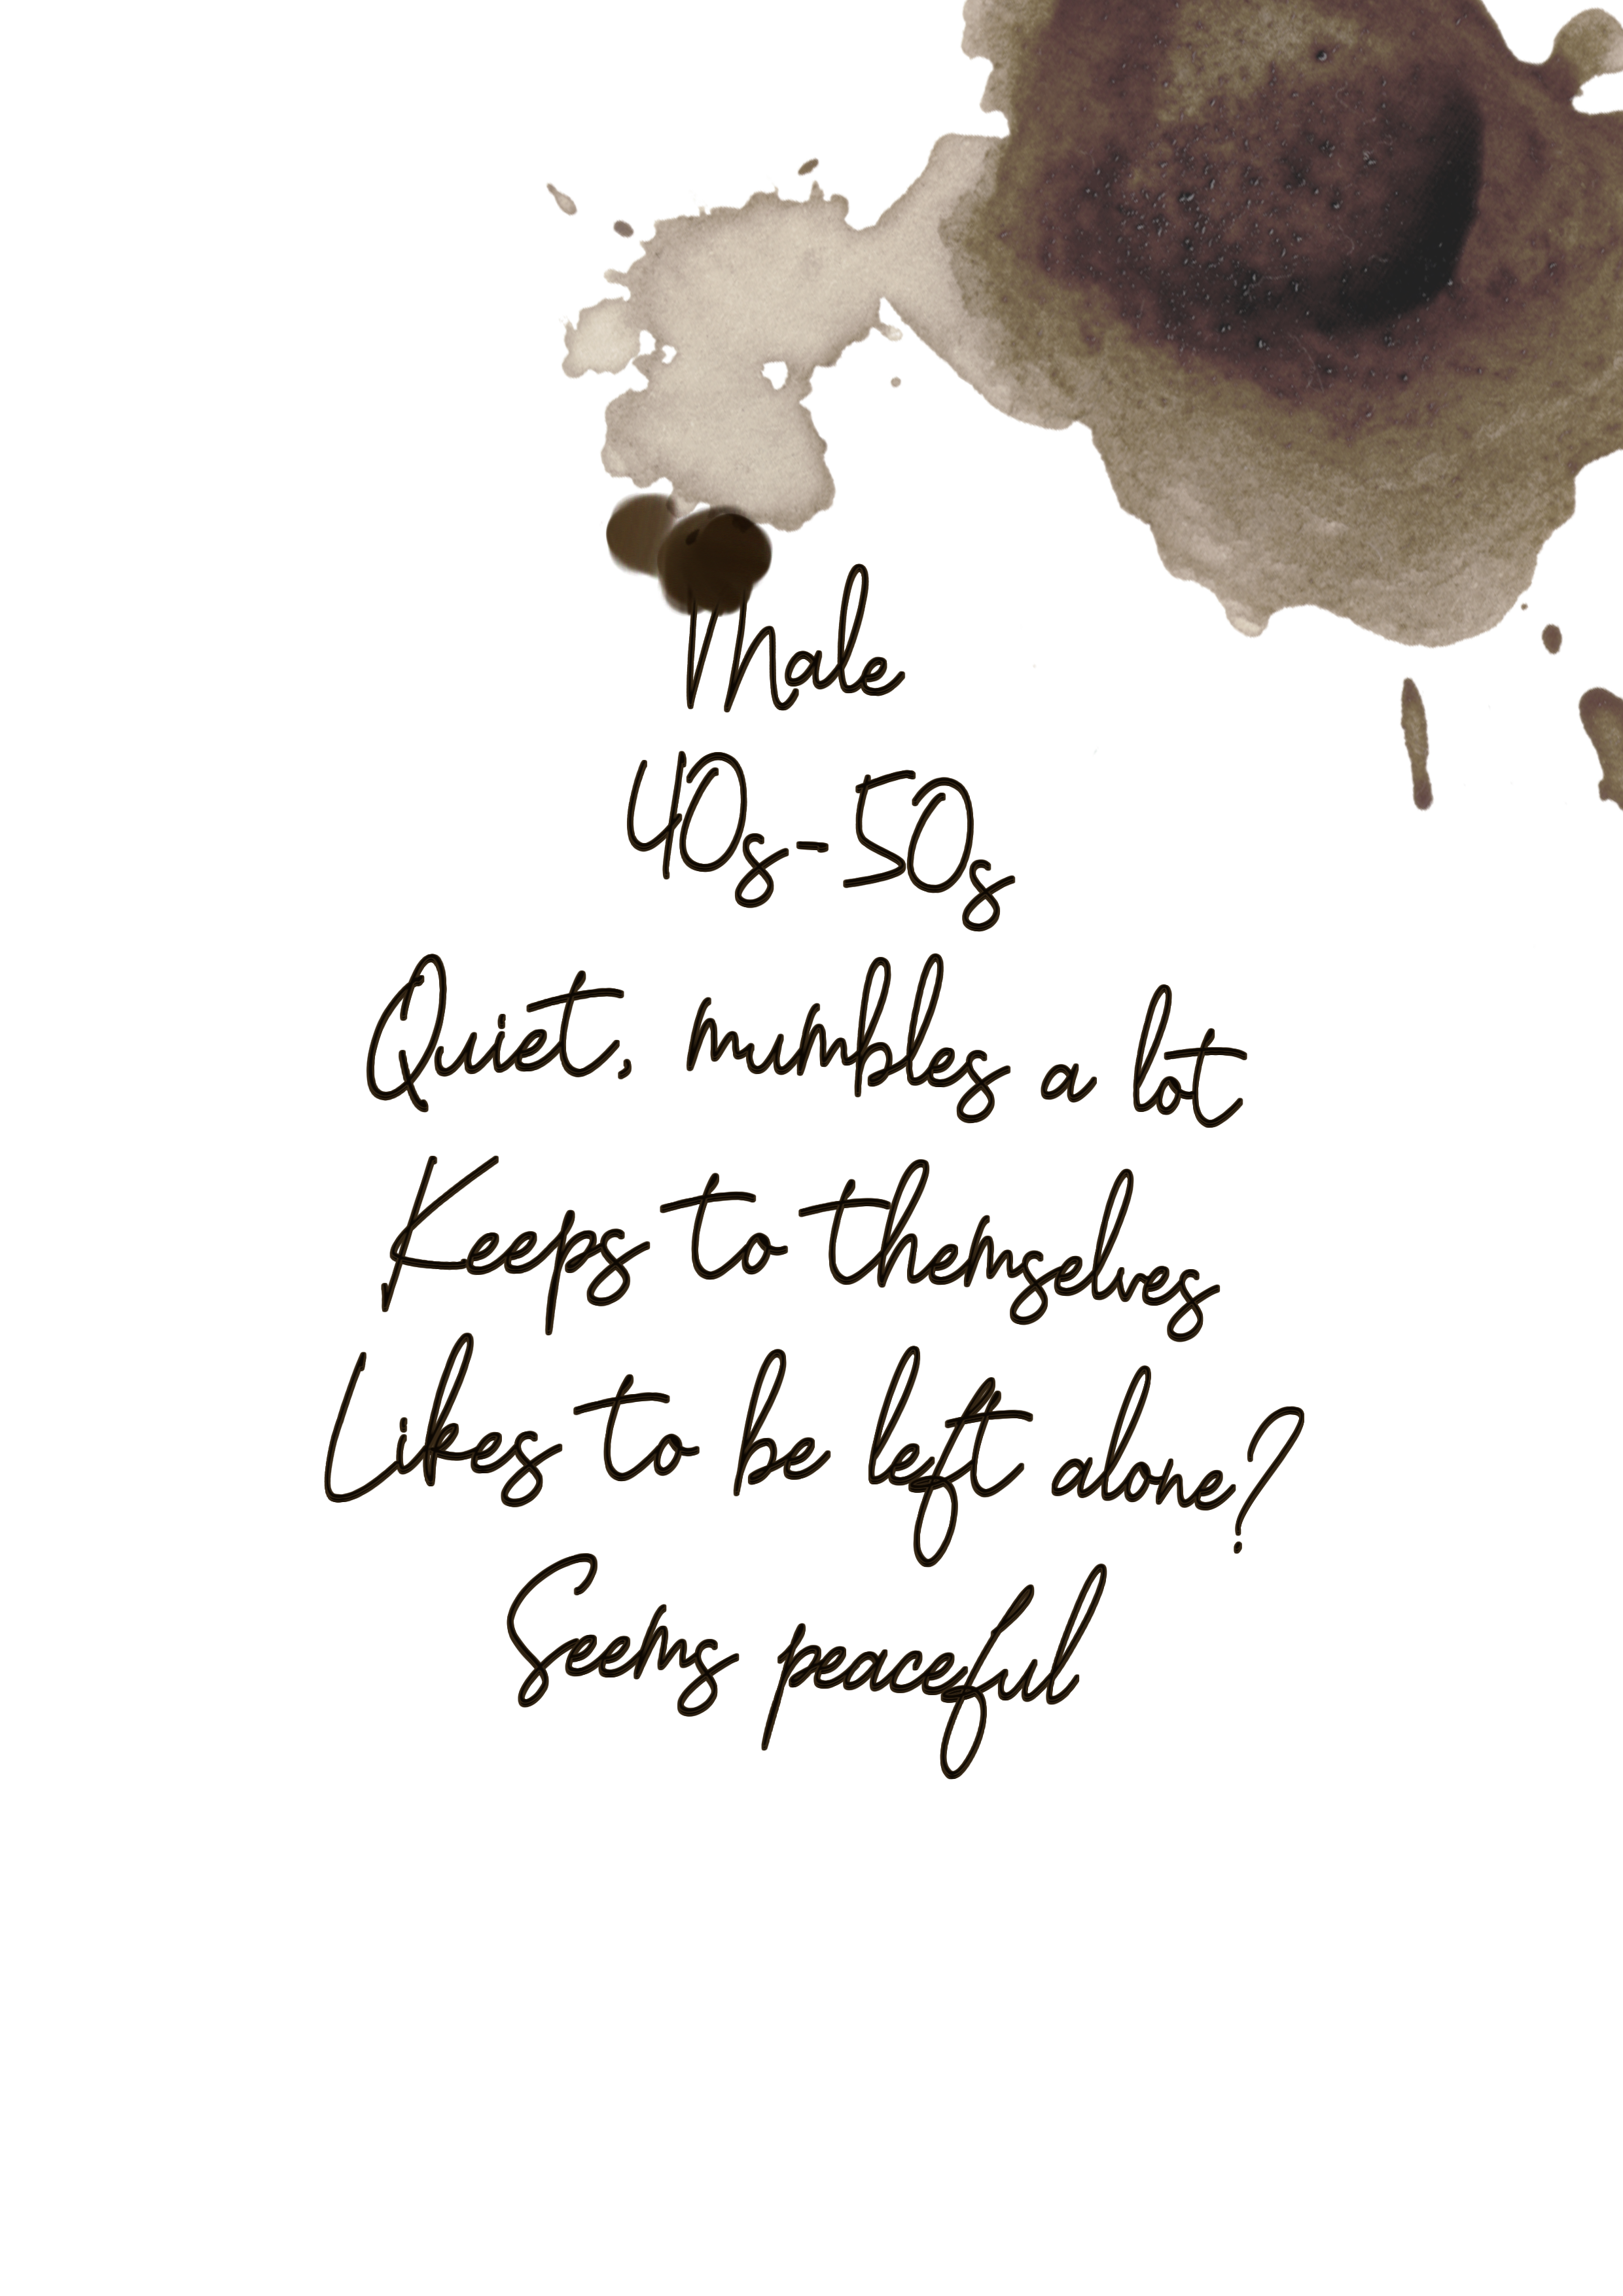 Male
40s-50s
Quiet, mumbles a lot
Keeps to themselves
Likes to be left alone?
Seems peaceful